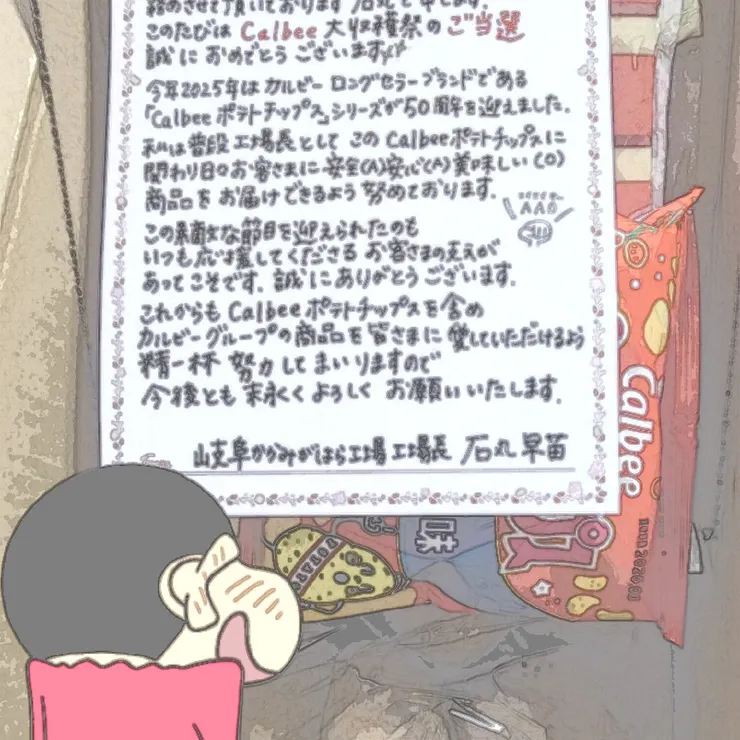 務めさせて頂いております 石丸と申します。
このたびは Calbee 大収穫祭の ご当選
誠に おめでとう ございます
今年2025年は カルビー ロングセラーブランドである
「Calbee ポテトチップス」シリーズが50周年を迎えました。
私は普段 工場長として この Calbeeポテトチップスに
関わり日々お客さまに安全(A)安心(A)美味しい(O)
商品を お届けできるよう 努めております。
AAO
この素敵な節目を迎えられたのも
いつも応援してくださる お客さまの支えが
あってこそです。誠にありがとうございます。
これからも Calbee ポテトチップスを含め
カルビーグループの商品を皆さまに 愛していただけるよう
精一杯 努力して まいりますので
今後とも 末永く よろしく お願いいたします。
岐阜かかみがはら工場 工場長 石丸 早苗
Calbee
味
POTATO